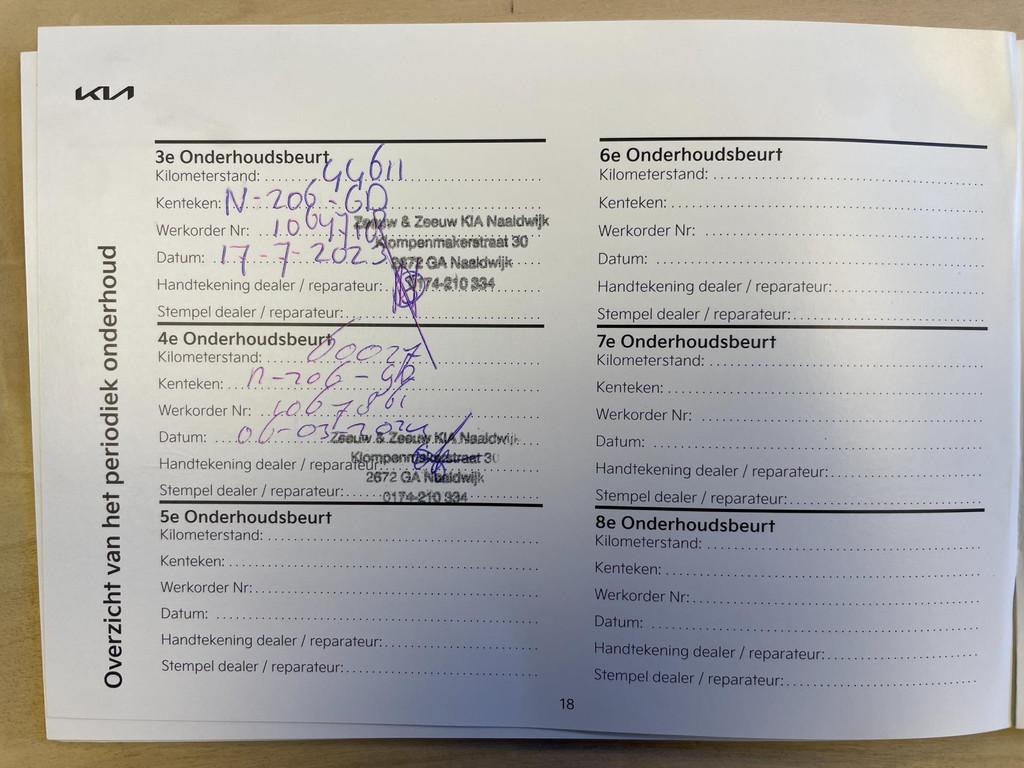 KIA
Overzicht van het periodiek onderhoud
3e Onderhoudsbeurt
Kilometerstand: 44611
Kenteken: N-206-GD
Werkorder Nr:
Datum: 17-7-2023
Handtekening dealer / reparateur:
Stempel dealer / reparateur:
Zeeuw & Zeeuw KIA Naaldwijk
Klompenmakerstraat 30
2672 GA Naaldwijk
0174-210 334
4e Onderhoudsbeurt
Kilometerstand: 60027
Kenteken: N-206-GD
Werkorder Nr: 1067861
Datum: 06-03-2024
Handtekening dealer / reparateur:
Stempel dealer / reparateur:
Zeeuw & Zeeuw KIA Naaldwijk
Klompenmakerstraat 30
2672 GA Naaldwijk
0174-210 334
5e Onderhoudsbeurt
Kilometerstand:
Kenteken:
Werkorder Nr:
Datum:
Handtekening dealer / reparateur:
Stempel dealer / reparateur:
6e Onderhoudsbeurt
Kilometerstand:
Kenteken:
Werkorder Nr:
Datum:
Handtekening dealer / reparateur:
Stempel dealer / reparateur:
7e Onderhoudsbeurt
Kilometerstand:
Kenteken:
Werkorder Nr:
Datum:
Handtekening dealer / reparateur:
Stempel dealer / reparateur:
8e Onderhoudsbeurt
Kilometerstand:
Kenteken:
Werkorder Nr:
Datum:
Handtekening dealer / reparateur:
Stempel dealer / reparateur:
18